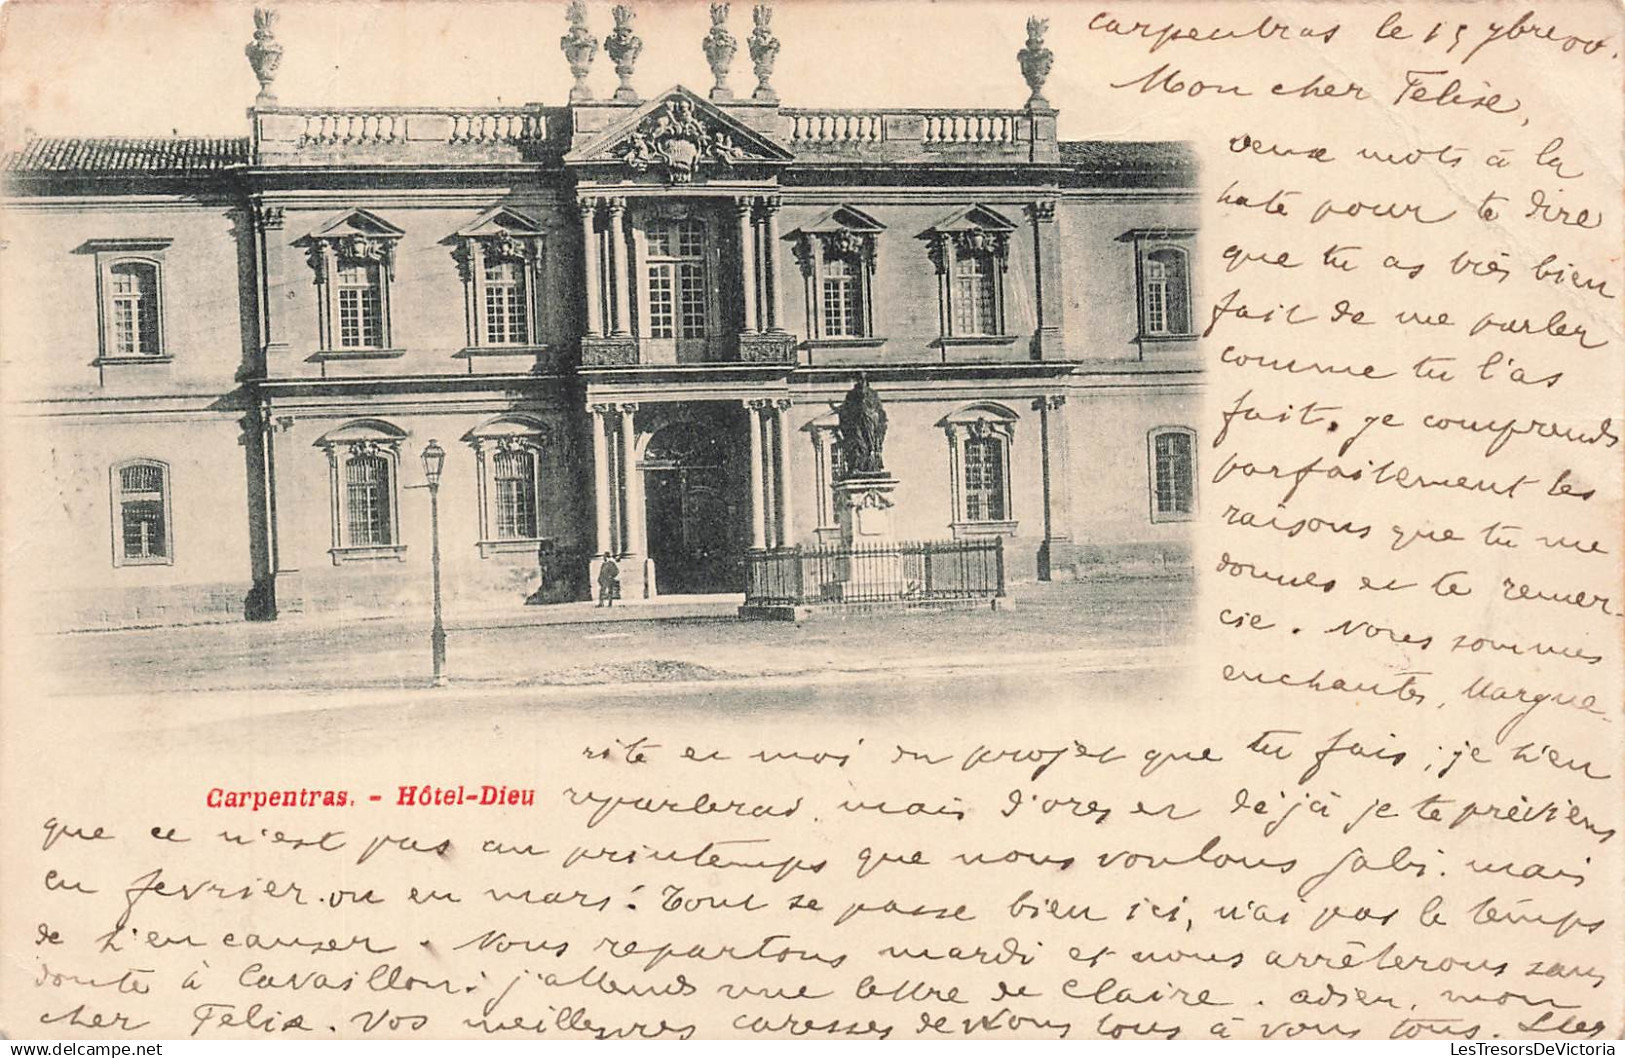 Carpentras le 15 9bre 00.
Mon cher Félix,
deux mots à la
hate pour te dire
que tu as très bien
fait de me parler
comme tu l'as
fait. je comprends
parfaitement les
raisons que tu me
donnes et te remer-
cie. Nous sommes
enchantés, Margue-
rite et moi du projet que tu fais ; je t'en
reparlerai. mais d'ores et déjà je te préviens
que ce n'est pas au printemps que nous voulons Gabi. mais
en fevrier. ou en mars. Tout se passe bien ici, n'ai pas le temps
de t'en causer. Nous repartons mardi et nous arrêterons sans
doute à Cavaillon. j'attends une lettre de Claire. adieu, mon
cher Félix. Vos meilleures caresses de Nous tous à vous tous.
Carpentras. - Hôtel-Dieu
LesTresorsDeVictoria